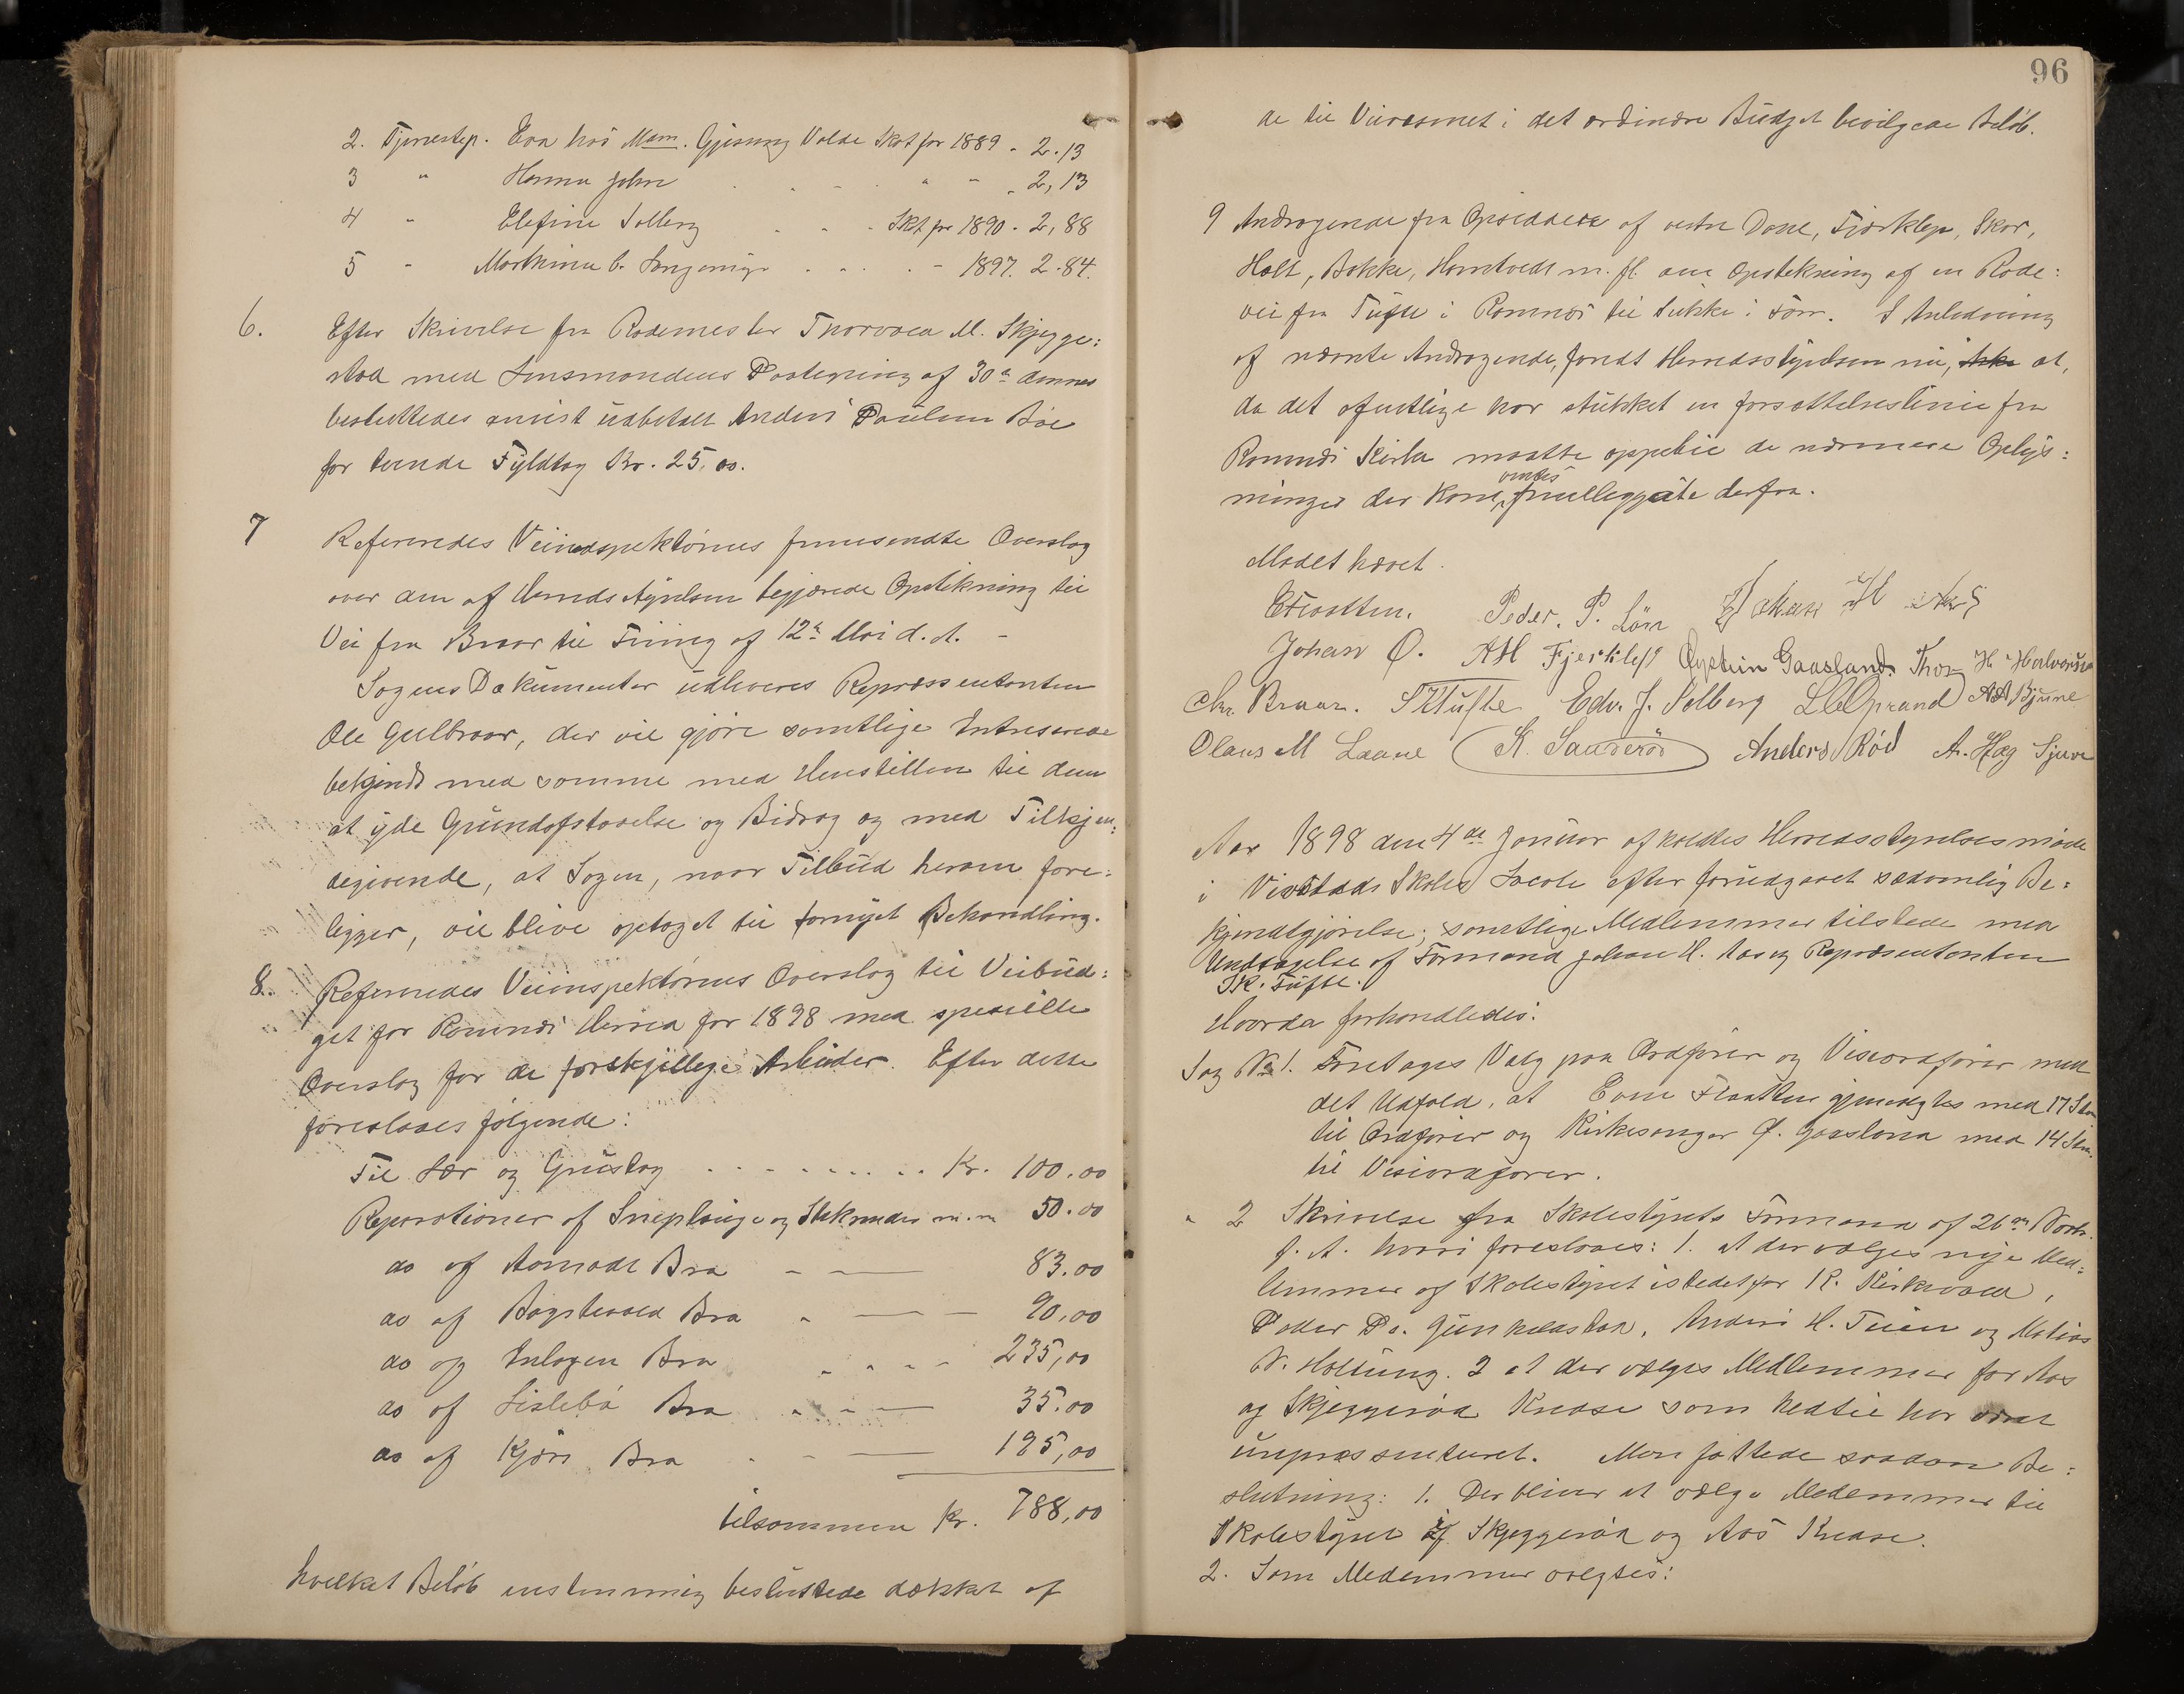 2. Tjenestep. Eva hos Mam. Gjesung Valde Skt for 1889 - 2.13
3 " Hanna John " " - 2,13
4 " Elefine Solberg Skt for 1890 - 2,88
5 " Marthina C. 1897. 2.84.
6. Efter Skrivelse fra Rodemester Thorvald M. Skjegge:
stad med Lensmandens Paategning af 30te dennes
besluttedes anvist udbetalt Anders Paulsen Bøe
for tvende Fyldtag Kr. 25,00.
7 Refereredes Veiindspektørnes fremsendte Overslag
over den af Herredsstyrelsen begjærede Opstikning til
Vei fra Braar til Tining af 12te Mai d. A. -
Sagens Dokumenter udleveres Repræsentanten
Ole Gulbraar, der vil gjøre samtlige Intreserede
bekjendt med samme med Henstillen til dem
at yde Grundafstaaelse og Bidrag og med Tilkjen:
degivende, at Sagen, naar Tilbud herom fore:
ligger, vil blive optaget til fornyet Behandling.
8. Refereredes Veiinspektørnes Overslag til Veibud:
get for Romnæs Herred for 1898 med spesielle
Overslag for de forskjellige Arbeider. Efter dette
foreslaaes følgende:
Til Ler og Grustag Kr. 100.00
Reparationer af Sneplouge og Stikrender m.m 50.00
do af Aamodt Bro 83.00
do af Bogstevold Bro 90,00
do af Bro 235,00
do af Lislebø Bro 35.00
do af Kjærs Bro 195,00
tilsammen Kr. 788,00
hvilket Beløb enstemmig besluttede dækket af
96
de til Veivæsnet i det ordinære Budget bevilgede Beløb.
9 Andragende fra Opsiddere af vestre Dale, Fjærklep, Skar,
Holt, Bakke, Homtvedt m. fl. om Opstikning af en Rode:
vei fra Tufte i Romnæs til Lukke i Som. I Anledning
af nævnte Andragende, fandt Herredsstyrelsen nu, ikke at,
da det ofentlige har stukket en forsættelseslinie fra
Romnæs Kirke maatte oppebie de nærmere Oplys:
ninger der kom, ventes fremleggate derfra.
Mødet hævet.
E Flaatten. Peder. P. Lønn Johan H Aas
Johan O. AH Fjerklep Øystein Gaasland. Thor H. Halvorsen
Chr. Braar. SKTufte Edv. J. Solberg AA Bjune
Olaus M Laane K. Sanderød Anders Rød A. Høg Sjuve
Aar 1898 den 4de Januar afholdtes Herredsstyrelsesmøde
i Vivestads Skoles Locale efter forudgaaet sædvanlig Be:
kjendtgjørelse; samtlige Medlemmer tilstede med
Undtagelse af Formand Johan H. Aas og Repræsentanten
SK. Tufte.
Hvorda forhandledes:
Sag No 1. Foretoges Valg paa Ordfører og Viseordfører med
det Udfald, at Even Flaatten gjenvalgtes med 17 Stm
til Ordfører og Kirkesanger Ø. Gaasland med 14 Stm.
til Viseordfører.
" 2 Skrivelse fra Skolestyrets Formand af 26de Novbr.
f. A. hvori foreslaaes: 1. at der vælges nye Med:
lemmer af Skolestyret istedetfor K. Kirkevold,
Peder Ps. Gunheldstad, Anders H. Tuien og Matias
N. Holtung. 2 at der vælges Medlemmer for Aas
og Skjeggerød Kredse som hedtil har været
urepræsenteret. Man fattede saadan Be:
slutning: 1. Der bliver at vælge Medemmer til
Skolestyret af Skjeggerød og Aas Kredse.
2. Som Medemmer valgtes: